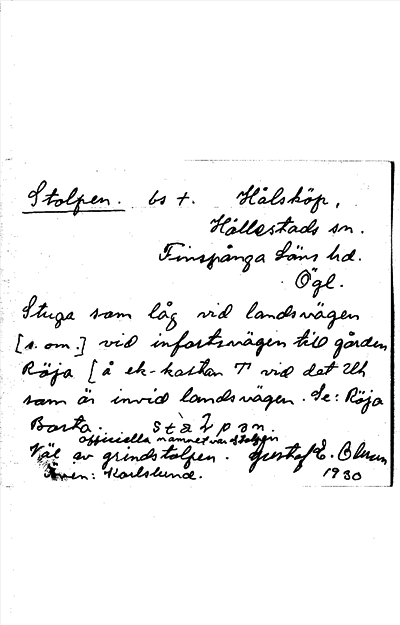 Stolpen. bs †. Hålsköp,
Hällestads sn.
Finspånga läns hd.
Ögl.
Stuga som låg vid landsvägen
[s. om.] vid infartsvägen till gården
Röja [å ek-kartan T vid det Uh
som är invid landsvägen. Se: Röja
Borta. stàlpan.
officiella namnet var Stolpen
Väl av grindstolpen. Gustaf E. Olsson
Även: Karlslund. 1930